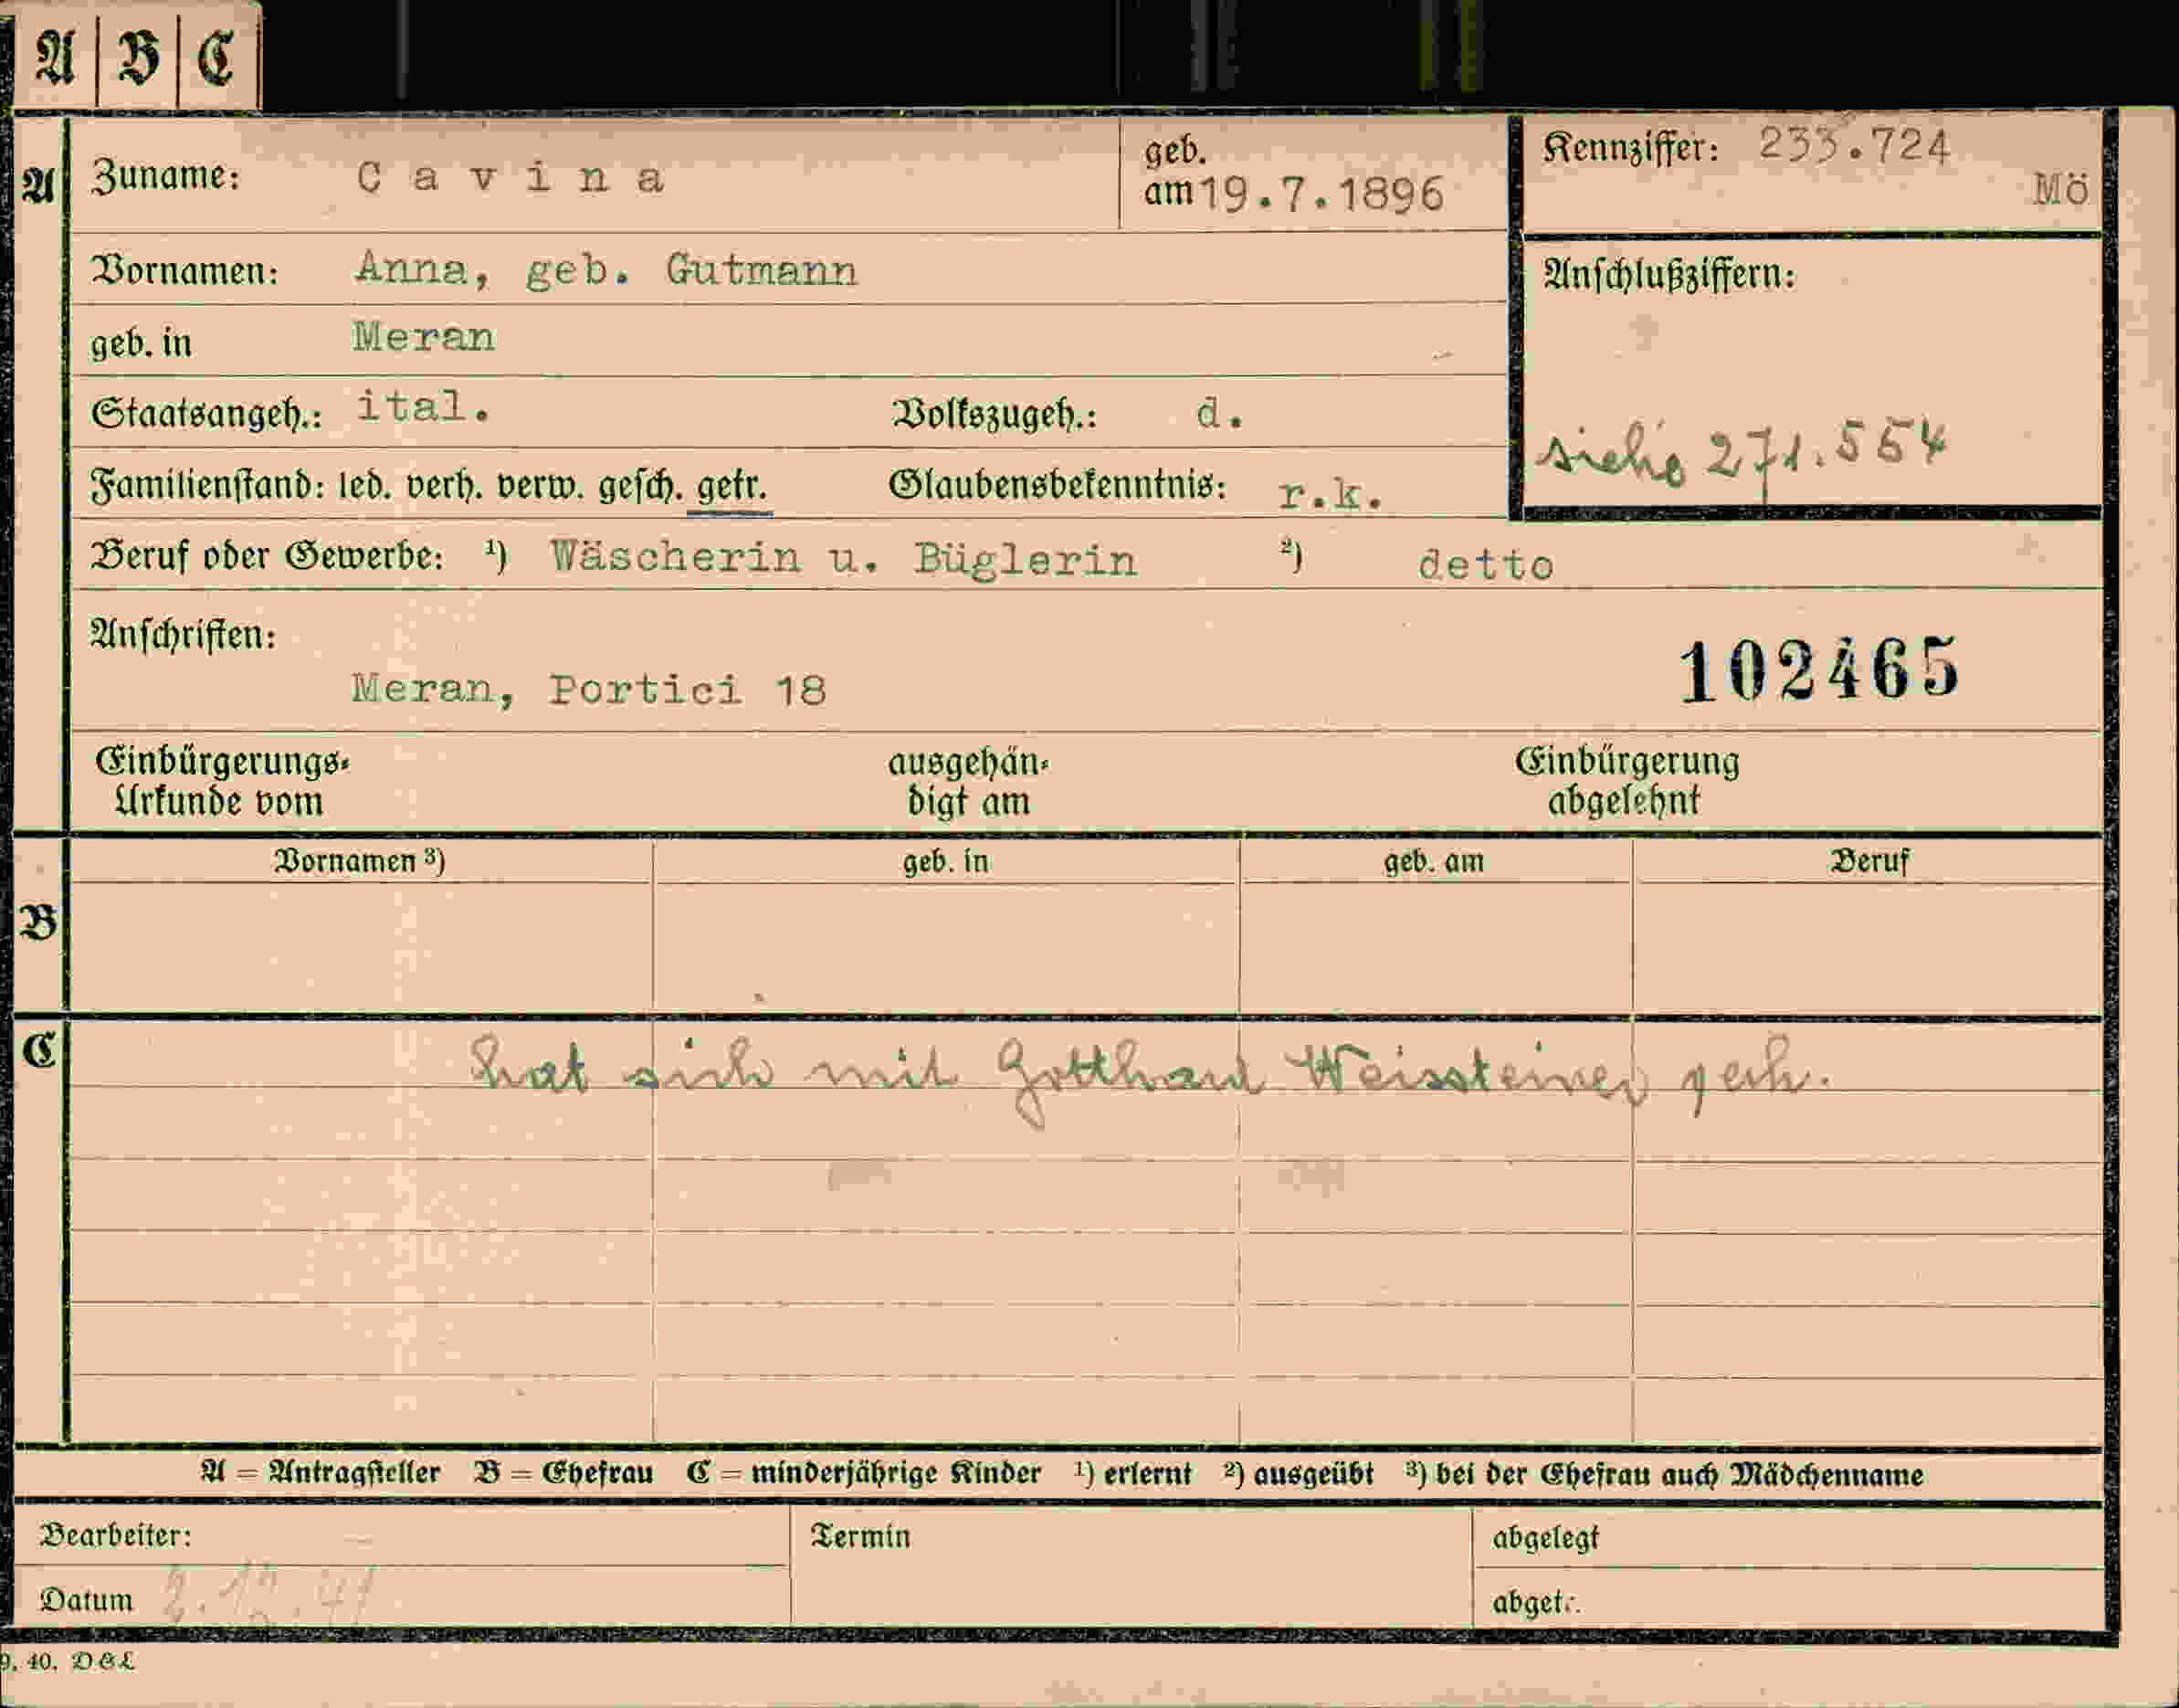 A B C
A Zuname: Cavina geb. am 19.7.1896 Kennziffer: 233.724
Mö
Vornamen: Anna, geb. Gutmann Anschlußziffern:
geb. in Meran
Staatsangeh.: ital. Volkszugeh.: d.
siehe 271.554
Familienstand: led. verh. verw. gesch. getr. Glaubensbekenntnis: r.k.
Beruf oder Gewerbe: ¹) Wäscherin u. Büglerin ²) detto
Anschriften:
Meran, Portici 18 102465
Einbürgerungs= ausgehän= Einbürgerung
Urkunde vom digt am abgelehnt
Vornamen ³) geb. in geb. am Beruf
B
C hat sich mit Gotthard Weissteiner
A = Antragsteller B = Ehefrau C = minderjährige Kinder ¹) erlernt ²) ausgeübt ³) bei der Ehefrau auch Mädchenname
Bearbeiter: Termin abgelegt
Datum 2.12.41 abget.:
9. 40. DGL